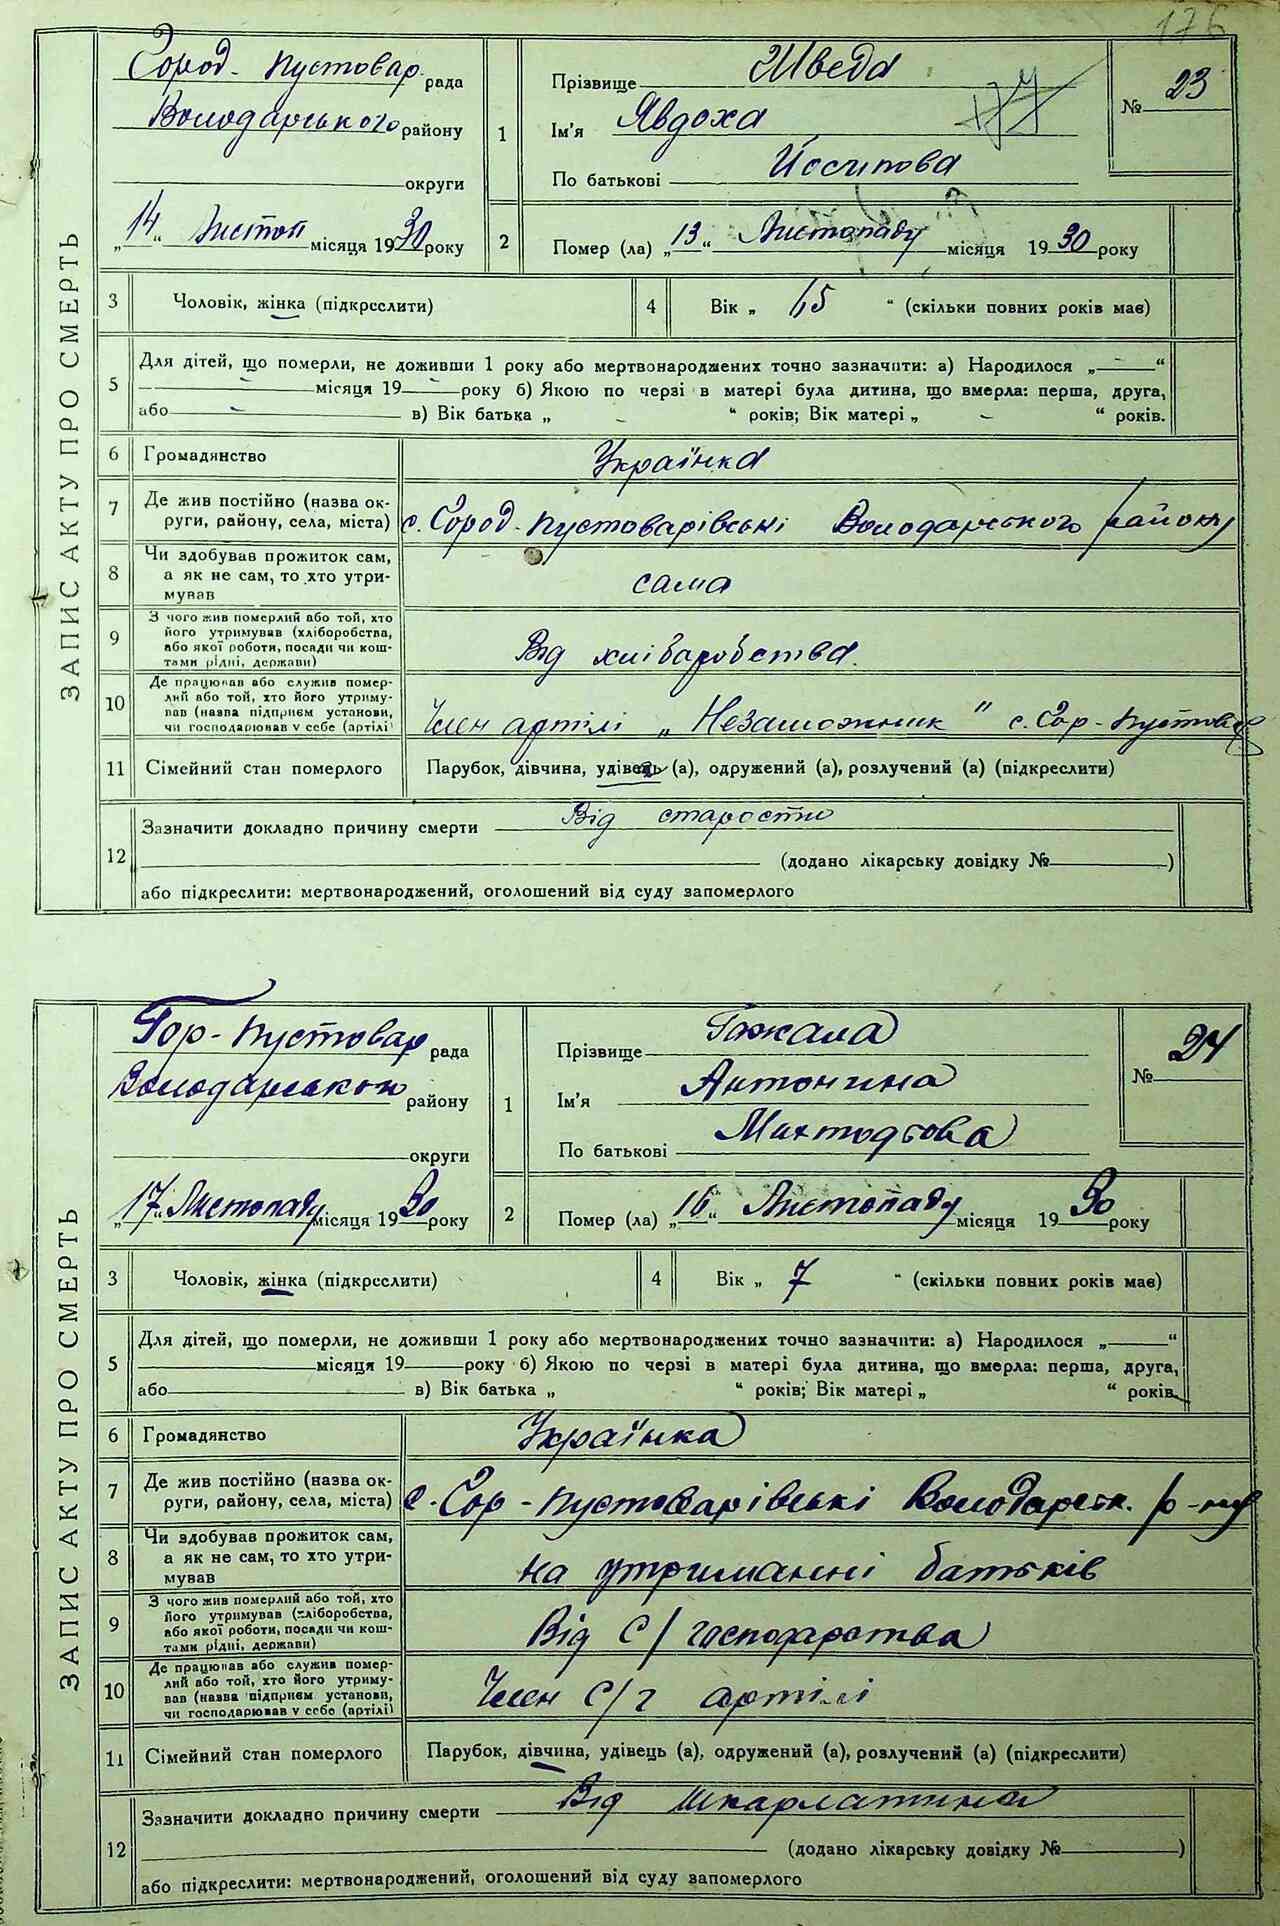 176
ЗАПИС АКТУ ПРО СМЕРТЬ
Город. Пустовар. рада
Володарського району
округи
„14“ Листоп місяця 1930 року
1
Прізвище Шведа
Ім'я Явдоха
По батькові Йосипова
№ 23
2 Помер (ла) „13“ Листопаду місяця 1930 року
3 Чоловік, жінка (підкреслити)
4 Вік „ 65 “ (скільки повних років має)
5 Для дітей, що померли, не доживши 1 року або мертвонароджених точно зазначити: а) Народилося „ — “
— місяця 19 — року б) Якою по черзі в матері була дитина, що вмерла: перша, друга,
або — в) Вік батька „ - “ років; Вік матері „ - “ років.
6 Громадянство Українка
7 Де жив постійно (назва ок-
руги, району, села, міста) с. Город-Пустоварівські Володарського району
8 Чи здобував прожиток сам,
а як не сам, то хто утри-
мував сама
9 З чого жив померлий або той, хто
його утримував (хліборобства,
або якої роботи, посади чи кош-
тами рідні, держави) Від хліборобства
10 Де працював або служив помер-
лий або той, хто його утриму-
вав (назва підприєм установи,
чи господарював у себе (артілі) Член артілі „Незаможник" с. Гор-Пустовар
11 Сімейний стан померлого Парубок, дівчина, удівець (а), одружений (а), розлучений (а) (підкреслити)
12 Зазначити докладно причину смерти Від старости
(додано лікарську довідку № )
або підкреслити: мертвонароджений, оголошений від суду запомерлого
ЗАПИС АКТУ ПРО СМЕРТЬ
Гор-Пустовар рада
Володарського району
округи
„17“ Листопаду місяця 1930 року
1
Прізвище Гажала
Ім'я Антонина
По батькові
№ 24
2 Помер (ла) „16“ Листопаду місяця 1930 року
3 Чоловік, жінка (підкреслити)
4 Вік „ 7 “ (скільки повних років має)
5 Для дітей, що померли, не доживши 1 року або мертвонароджених точно зазначити: а) Народилося „ “
місяця 19 року б) Якою по черзі в матері була дитина, що вмерла: перша, друга,
або в) Вік батька „ “ років; Вік матері „ “ років.
6 Громадянство Українка
7 Де жив постійно (назва ок-
руги, району, села, міста) с. Гор-Пустоварівські Володарськ. р-ну
8 Чи здобував прожиток сам,
а як не сам, то хто утри-
мував на утриманні батьків
9 З чого жив померлий або той, хто
його утримував (хліборобства,
або якої роботи, посади чи кош-
тами рідні, держави) Від С/господарства
10 Де працював або служив помер-
лий або той, хто його утриму-
вав (назва підприєм установи,
чи господарював у себе (артілі) Член С/г артілі
11 Сімейний стан померлого Парубок, дівчина, удівець (а), одружений (а), розлучений (а) (підкреслити)
12 Зазначити докладно причину смерти Від шкарлатина
(додано лікарську довідку № )
або підкреслити: мертвонароджений, оголошений від суду запомерлого